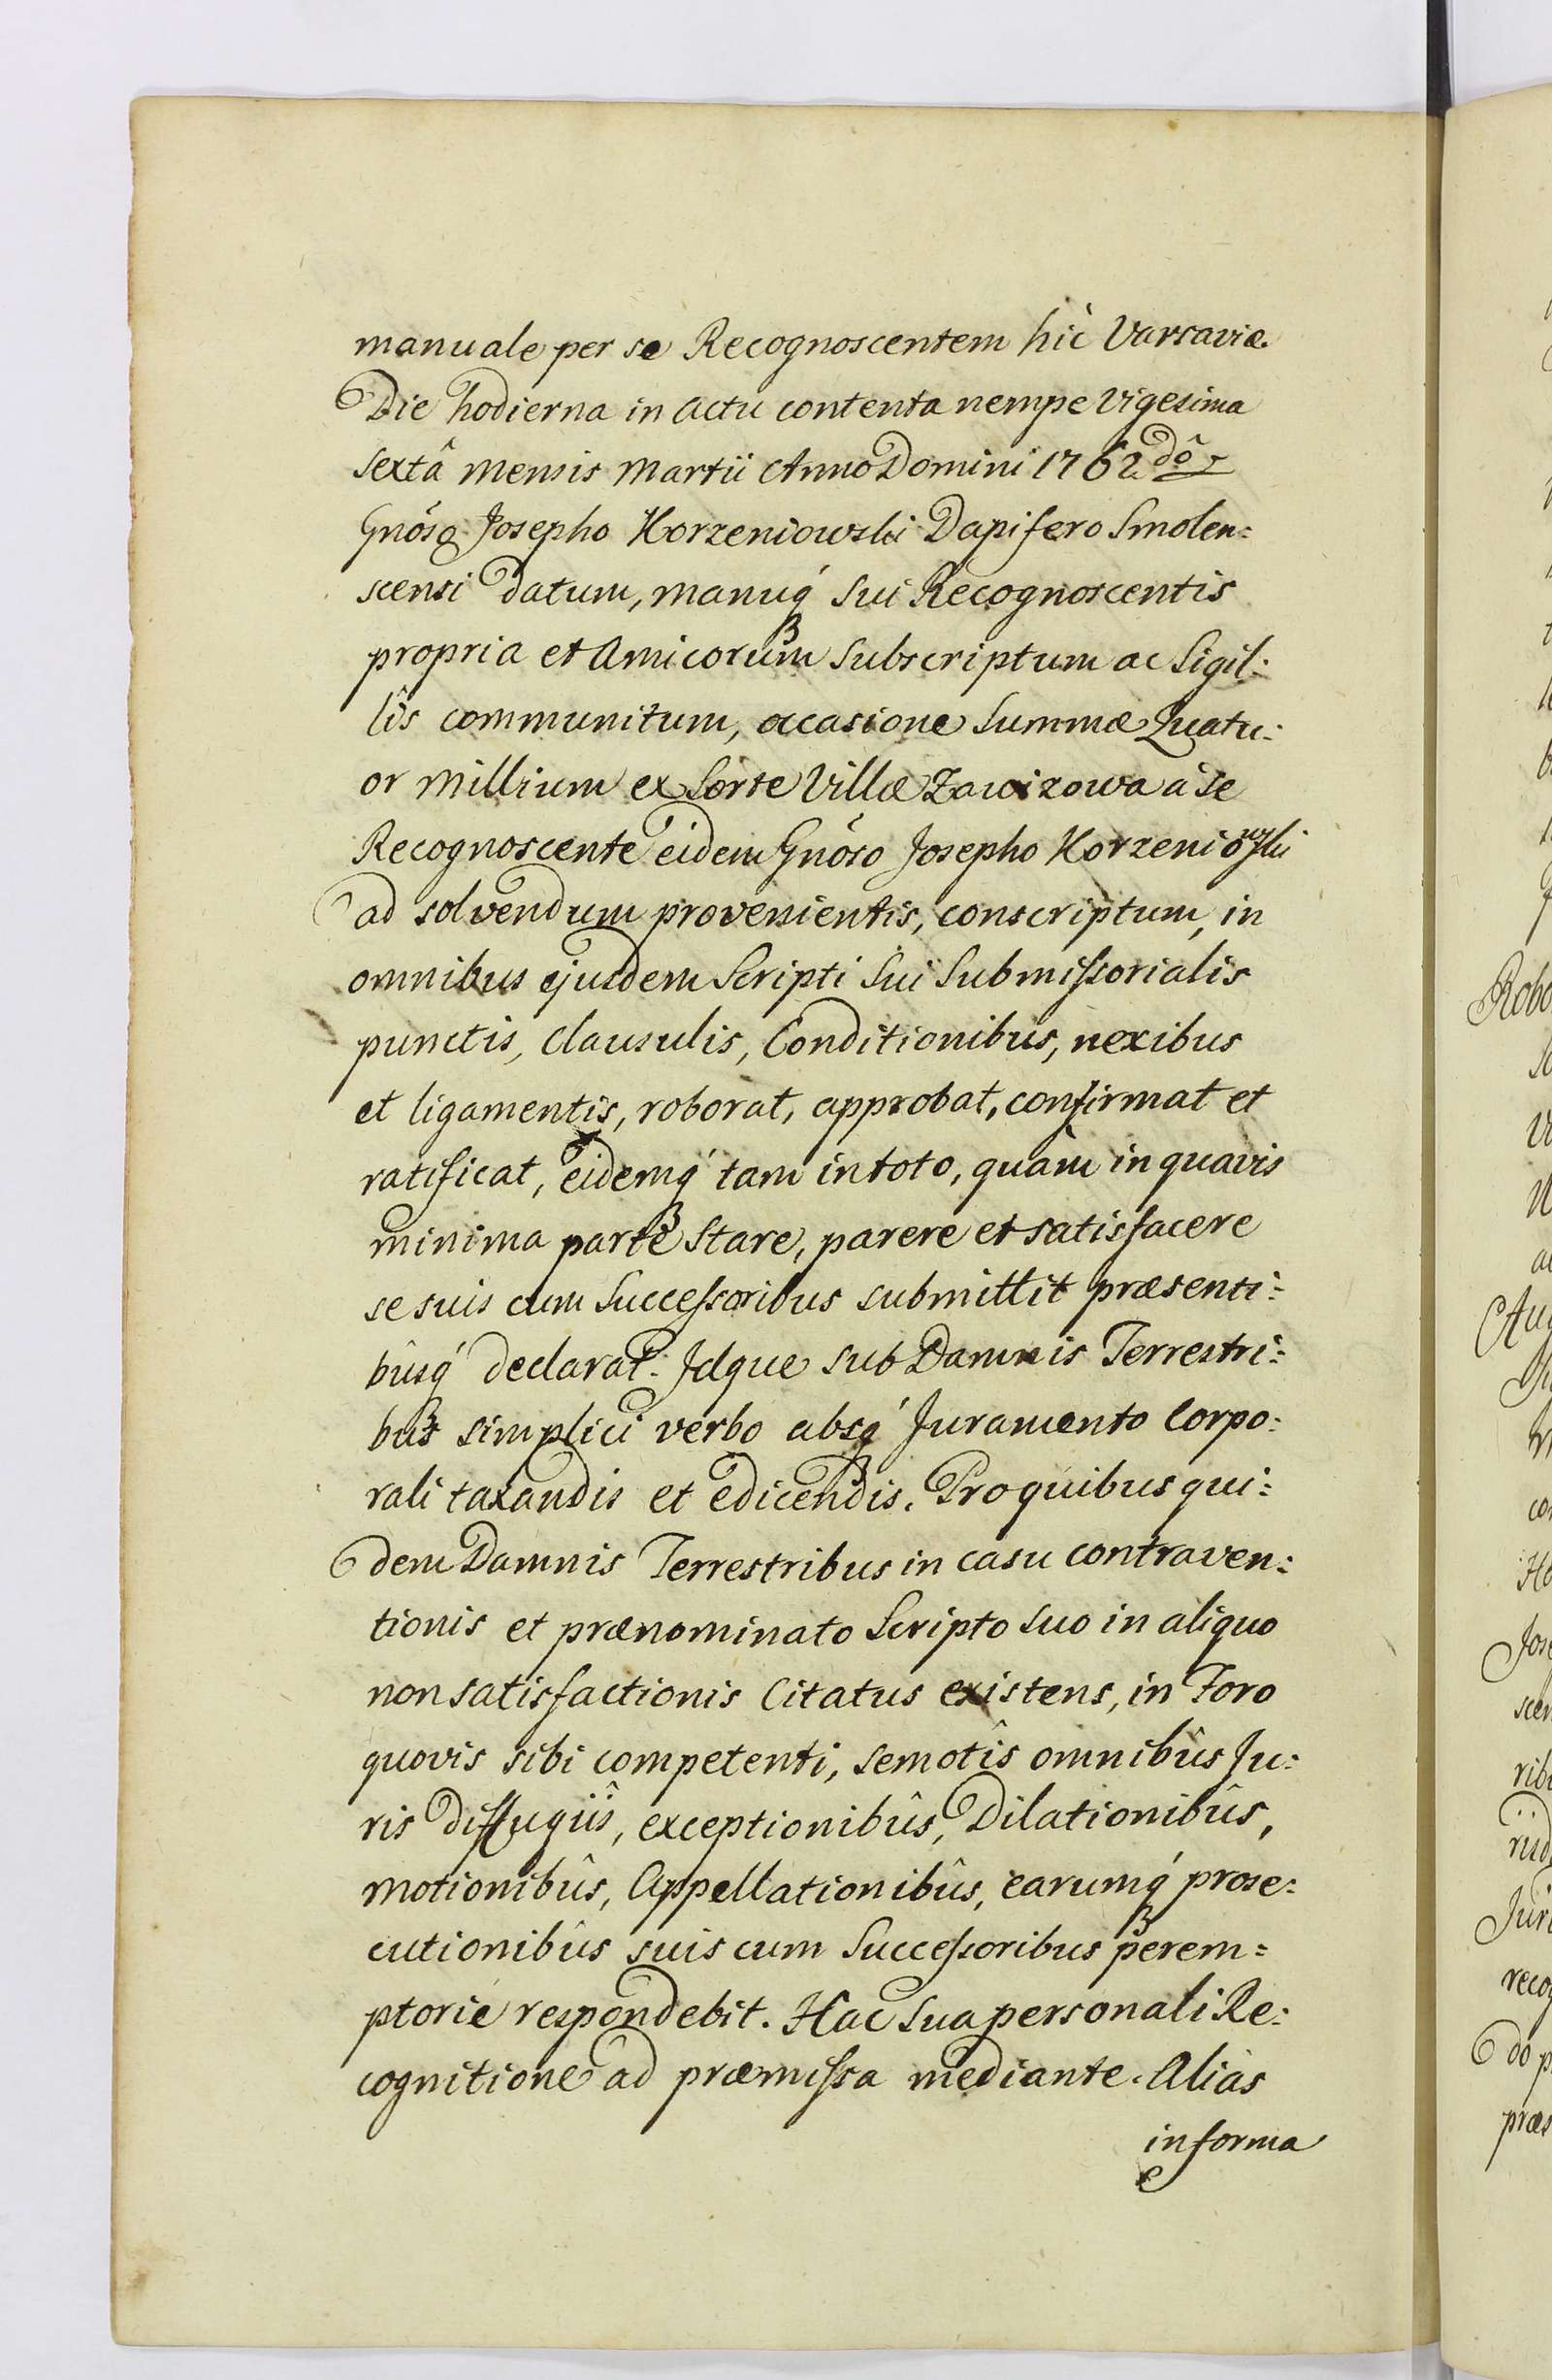 manuale per se Recognoscentem hic Varsaviæ
Die hodierna in actu contenta nempe Vigesima
sextâ mensis Martii Anno Domini 1762dô
Gnôso Josepho Korzeniowski Dapifero Smolen:
scensi datum, manuq́ sui Recognoscentis
propria et Amicorum subscriptum ac Sigil:
lis communitum, occasione Summæ Quatu:
or Millium ex Sorte Villæ Zawizowa à se
Recognoscente eidem Gnôso Josepho Korzeniowski
ad solvendum provenientis, conscriptum, in
omnibus ejusdem Scripti sui Submiſsorialis
punctis, Clausulis, Conditionibus, nexibus
et ligamentis, roborat, approbat, confirmat et
ratificat, eidemq́ tam in toto, quàm in quavis
minima parte stare, parere et satisfacere
se suis cum Succeſsoribus submittit præsenti:
bûsq́ declarat. Idque sub Damnis Terrestri:
bus simplici verbo absq́ Juramento Corpo:
rali taxandis et edicendis. Pro quibus qui:
dem Damnis Terrestribus in casu contraven:
tionis et prænominato Scripto suo in aliquo
non satisfactionis Citatus existens, in Foro
quovis sibi competenti, semotîs omnibûs Ju:
ris diffugiîs, exceptionibûs, Dilationibûs,
motionibûs, Appellationibûs, earumq́ prose:
cutionibûs suis cum Succeſsoribus perem:
ptorie respondebit. Hac sua personali Re:
cognitione ad præmiſsa mediante. Aliàs
in forma
Robo